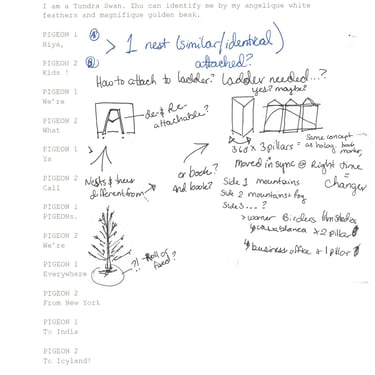 I am a Tundra Swan. Zhu can identify me by my angelique white
feathers and magnifique golden beak.
PIGEON 1
Hiya,
PIGEON 2
Kids !
PIGEON 1
We're
PIGEON 2
What
PIGEON 1
Ya
PIGEON 2
Call
PIGEON 1
PIGEONs.
PIGEON 2
We're
PIGEON 1
Everywhere
PIGEON 2
From New York
PIGEON 1
To India
PIGEON 2
To Icyland!
> 1 nest (similar/identical)
attached?
How to attach to ladder? Ladder needed...?
yes? maybe?
de & Re-
attachable?
360 x 3 pillars
Same concept
= as holog. book
marker,
Moved in sync @ Right time
= changer
Nests & trees
different from
or book?
and book?
Side 1 mountains
Side 2 mountains + fog
Side 3 ... ?
> Warner Birders film studio
Casablanca x 2 pillar
business office x 1 pillar
?! Roll of